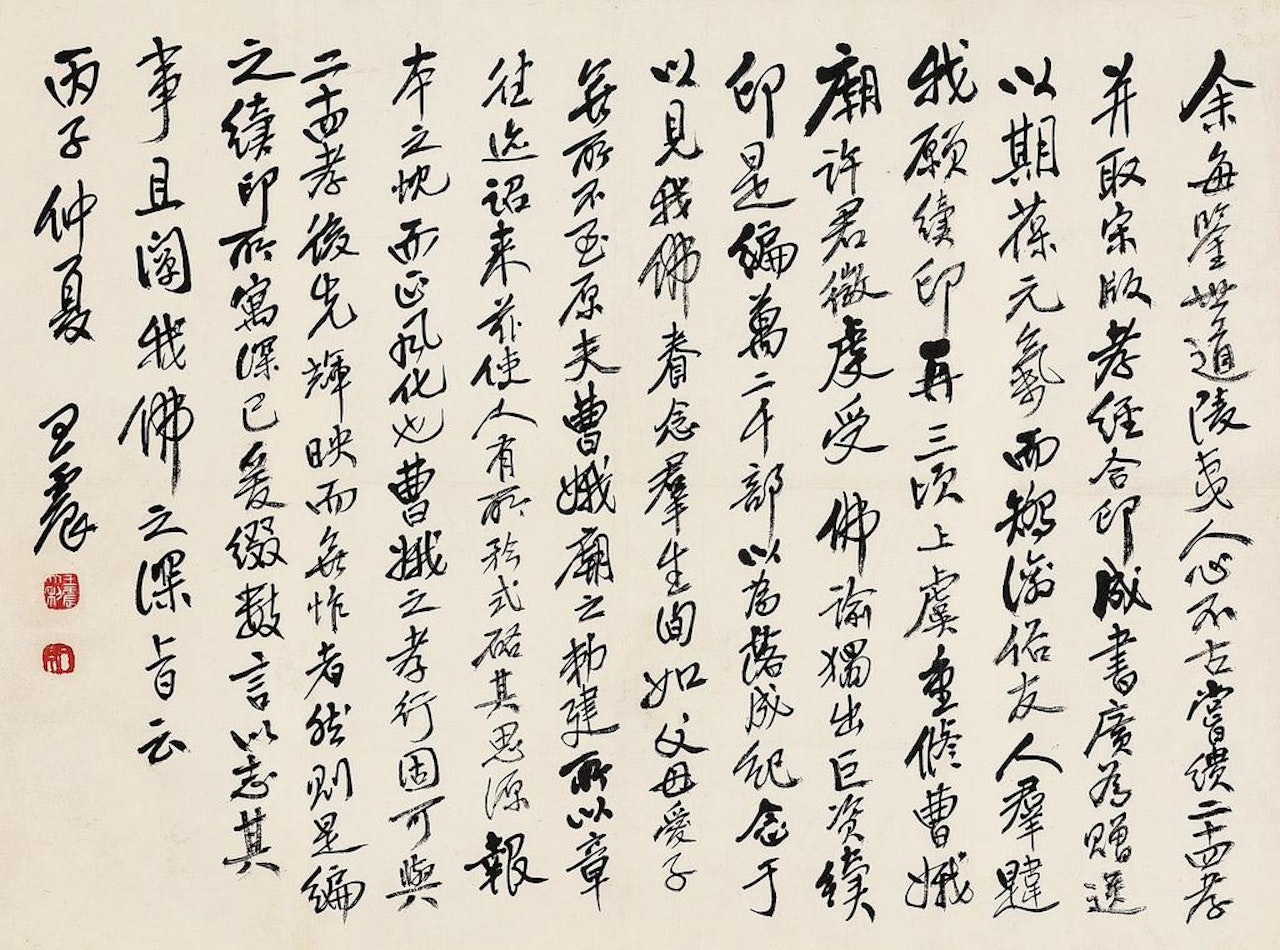 余每鑒世道陵夷人心不古嘗繢二十四孝
并取宋版孝經合印成書廣為贈送
以期葆元氣而矯澆俗友人羣韙
我願續印再三頃上虞重修曹娥
廟許君微虔受佛諭獨出巨資續
印是編萬二千部以為落成紀念于
以見我佛眷念羣生固如父母愛子
無所不至原夫曹娥廟之勅建所以章
往迄詔來茲使人有所矜式啟其思源報
本之忱而正風化也曹娥之孝行固可與
二十四孝後先輝映而無怍者然則是編
之續印所寓深已爰綴數言以志其
事且闡我佛之深旨云
丙子仲夏 王震
王震